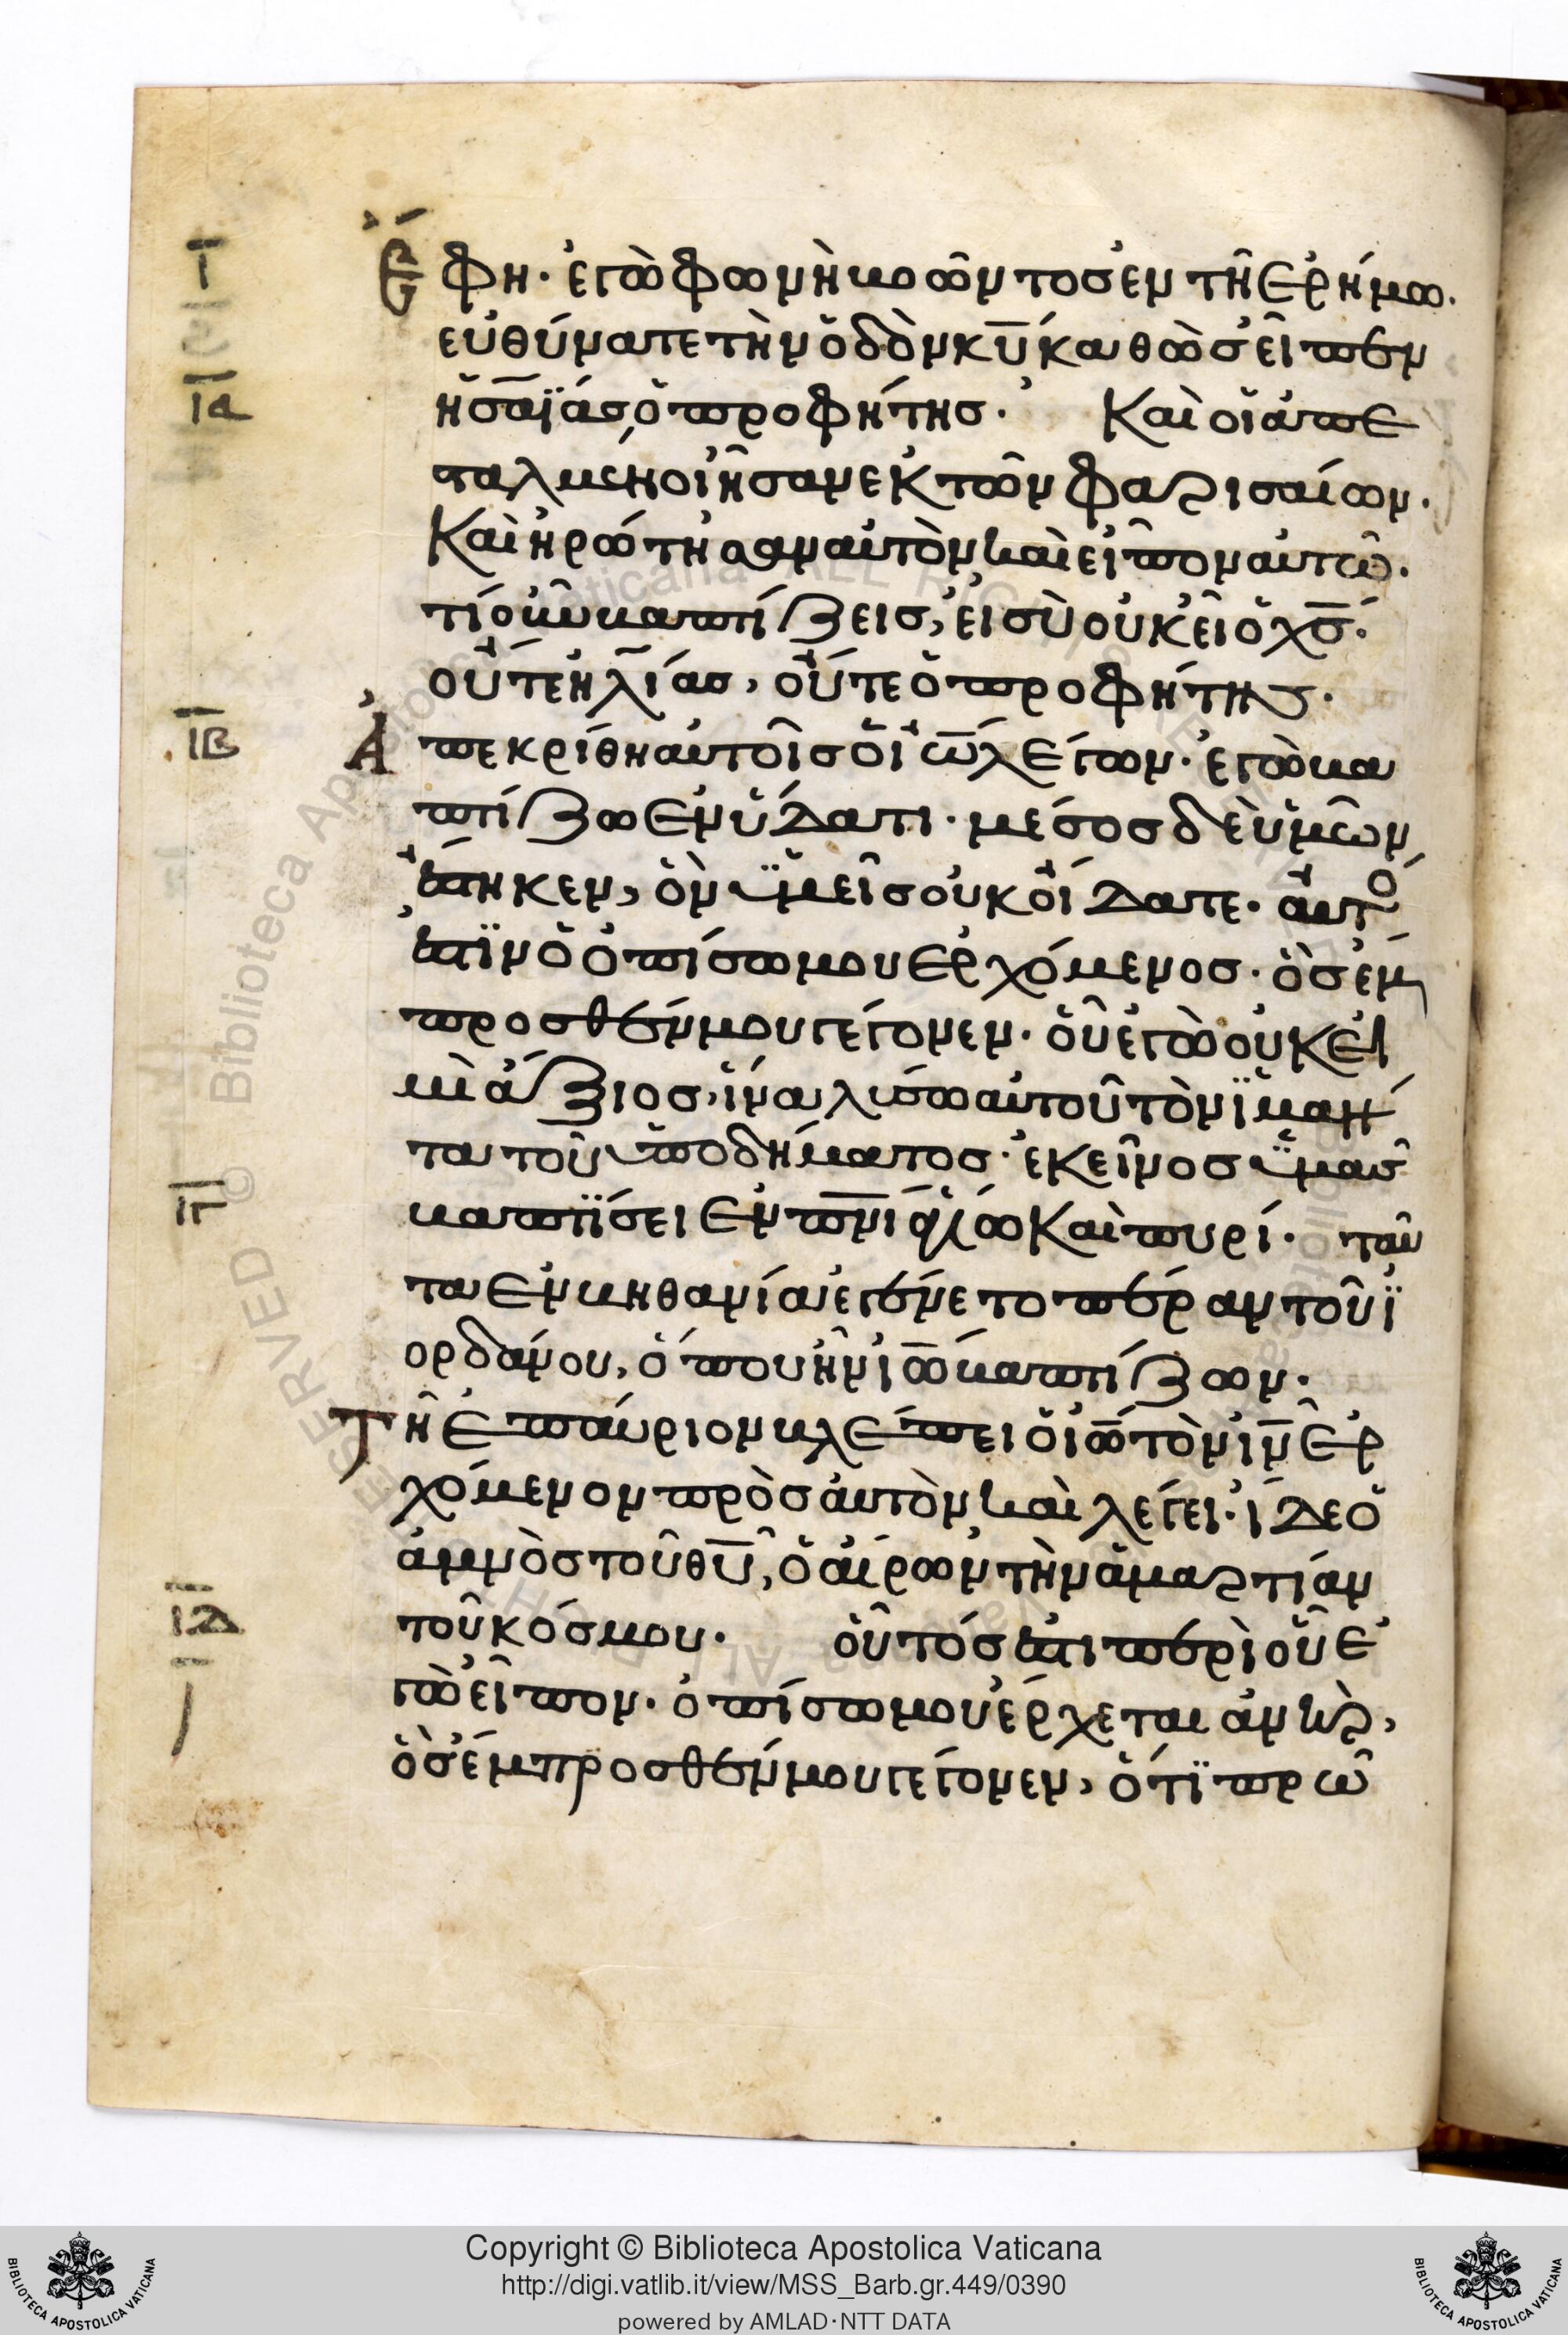 Ι
ΙΑ
ΙΒ
ΙΓ
ΙΔ
Ἔφη· ἐγὼ φωνὴ βοῶντος ἐν τῆ ἐρήμω·
εὐθύνατε τὴν ὁδὸν κ̅υ̅ καθὼς εἶπεν
ἡσαΐας ὁ προφήτης· Καὶ οἱ ἀπε
ταλμένοι ἦσαν ἐκ τῶν φαρισαίων·
Καὶ ἠρώτησαν αὐτὸν καὶ εἶπον αὐτῶ·
τί οὖν βαπτίζεις, εἰ σὺ οὐκ εἶ ὁ χ̅σ̅·
οὔτε ἠλίας, οὔτε ὁ προφήτης·
Ἀπεκρίθη αὐτοῖς ὁ ἰ̅ω̅ λέγων· ἐγὼ βα
πτίζω ἐν ὕδατι· μέσος δὲ ὑμῶν
ἕστηκεν, ὃν ὑμεῖς οὐκ οἴδατε· αὐτό
ἐστϊν ὁ ὀπίσω μου ἐρχόμενος· ὃς ἔμ
προσθέν μου γέγονεν· οὗ ἐγὼ οὐκ εἰ
μὶ ἄξιος, ἵνα λύσω αὐτοῦ τὸν ϊμάν
τα τοῦ ὑποδήματος· ἐκεῖνος ὑμᾶς
βαπτϊσει ἐν π̅ν̅ι̅ ἁγίω Καὶ πυρί· ταῦ
τα ἐν βηθανία ἐγένετο πέραν τοῦ ϊ
ορδάνου, ὅπου ἦν ἰ̅ω̅ βαπτίζων·
Τῆ ἐπαύριον βλέπει ὁ ἰ̅ω̅ τὸν ι̅ν̅ ἐρ
χόμενον πρὸς αὐτὸν καὶ λέγει· ἴδε ὁ
ἀμνὸς τοῦ θ̅υ̅, ὁ αἴρων τὴν ἁμαρτίαν
τοῦ κόσμου· οὗτός ἐστι περὶ οὗ ἐ
γὼ εἶπον· ὀπίσω μου ἔρχεται ἀνὴρ,
ὃς ἔμπροσθέν μου γέγονεν, ὅτϊ πρῶ
© Biblioteca Apostolica Vaticana ALL RIGHTS RESERVED
Copyright © Biblioteca Apostolica Vaticana
http://digi.vatlib.it/view/MSS_Barb.gr.449/0390
powered by AMLAD·NTT DATA
BIBLIOTECA APOSTOLICA VATICANA
BIBLIOTECA APOSTOLICA VATICANA